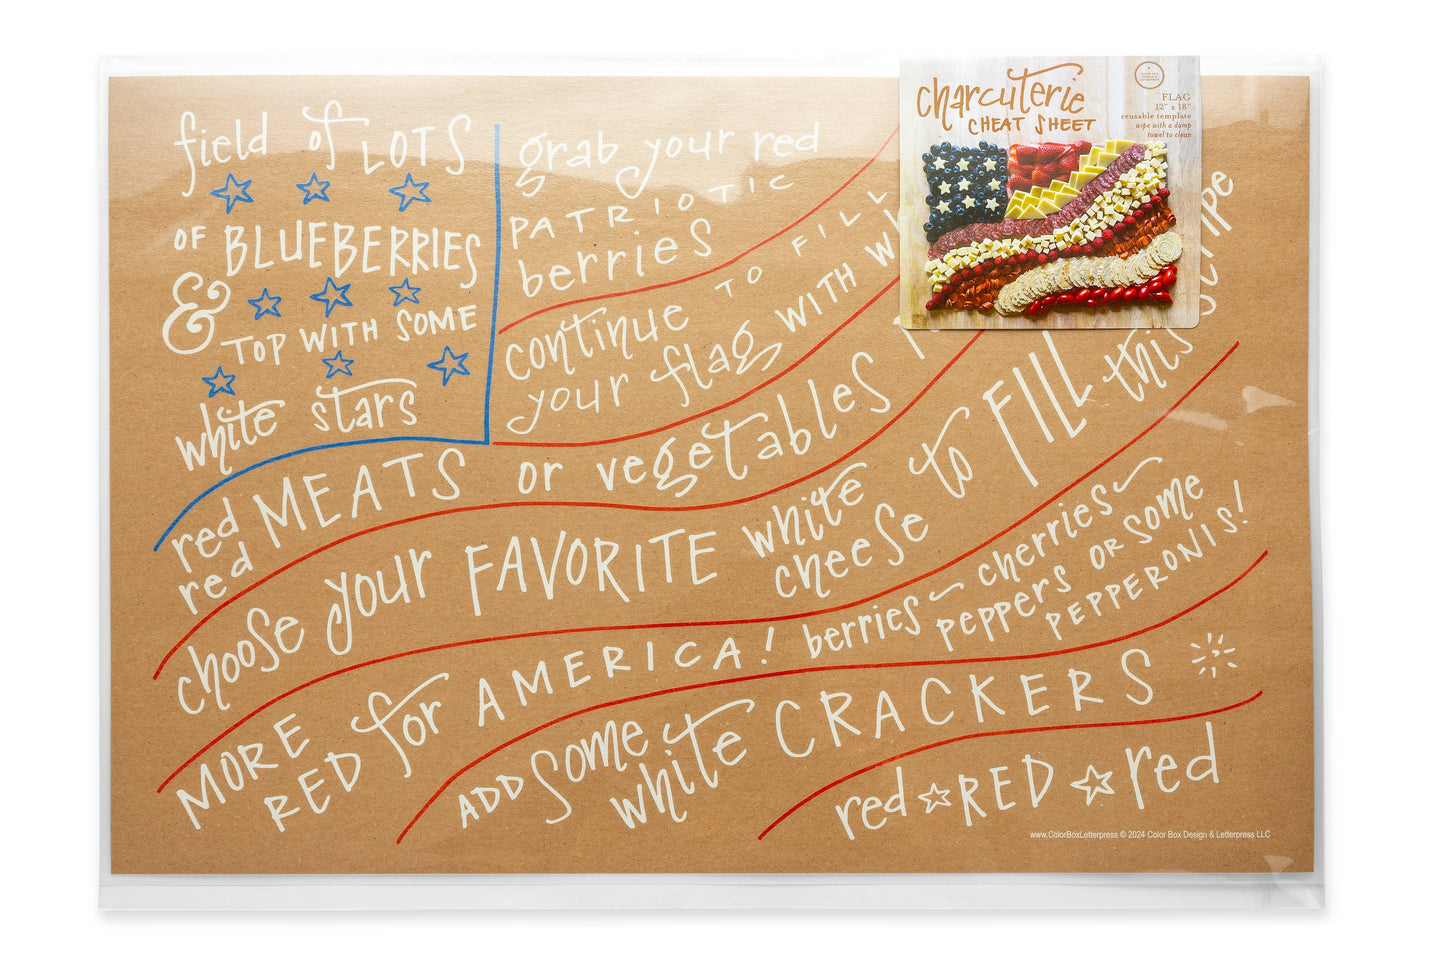 field of LOTS
OF BLUEBERRIES
& TOP WITH SOME
white stars
grab your red
PATRIOTIC
berries
continue TO FILL
your flag WITH
red MEATS or vegetables
red
choose your FAVORITE white cheese to FILL this stripe
MORE RED for AMERICA! berries~ cherries~ peppers OR SOME PEPPERONIS!
ADD some white CRACKERS
red ☆ RED ☆ red
www.ColorBoxLetterpress © 2024 Color Box Design & Letterpress LLC
charcuterie
CHEAT SHEET
FLAG
12" x 18"
reusable template
wipe with a damp
towel to clean